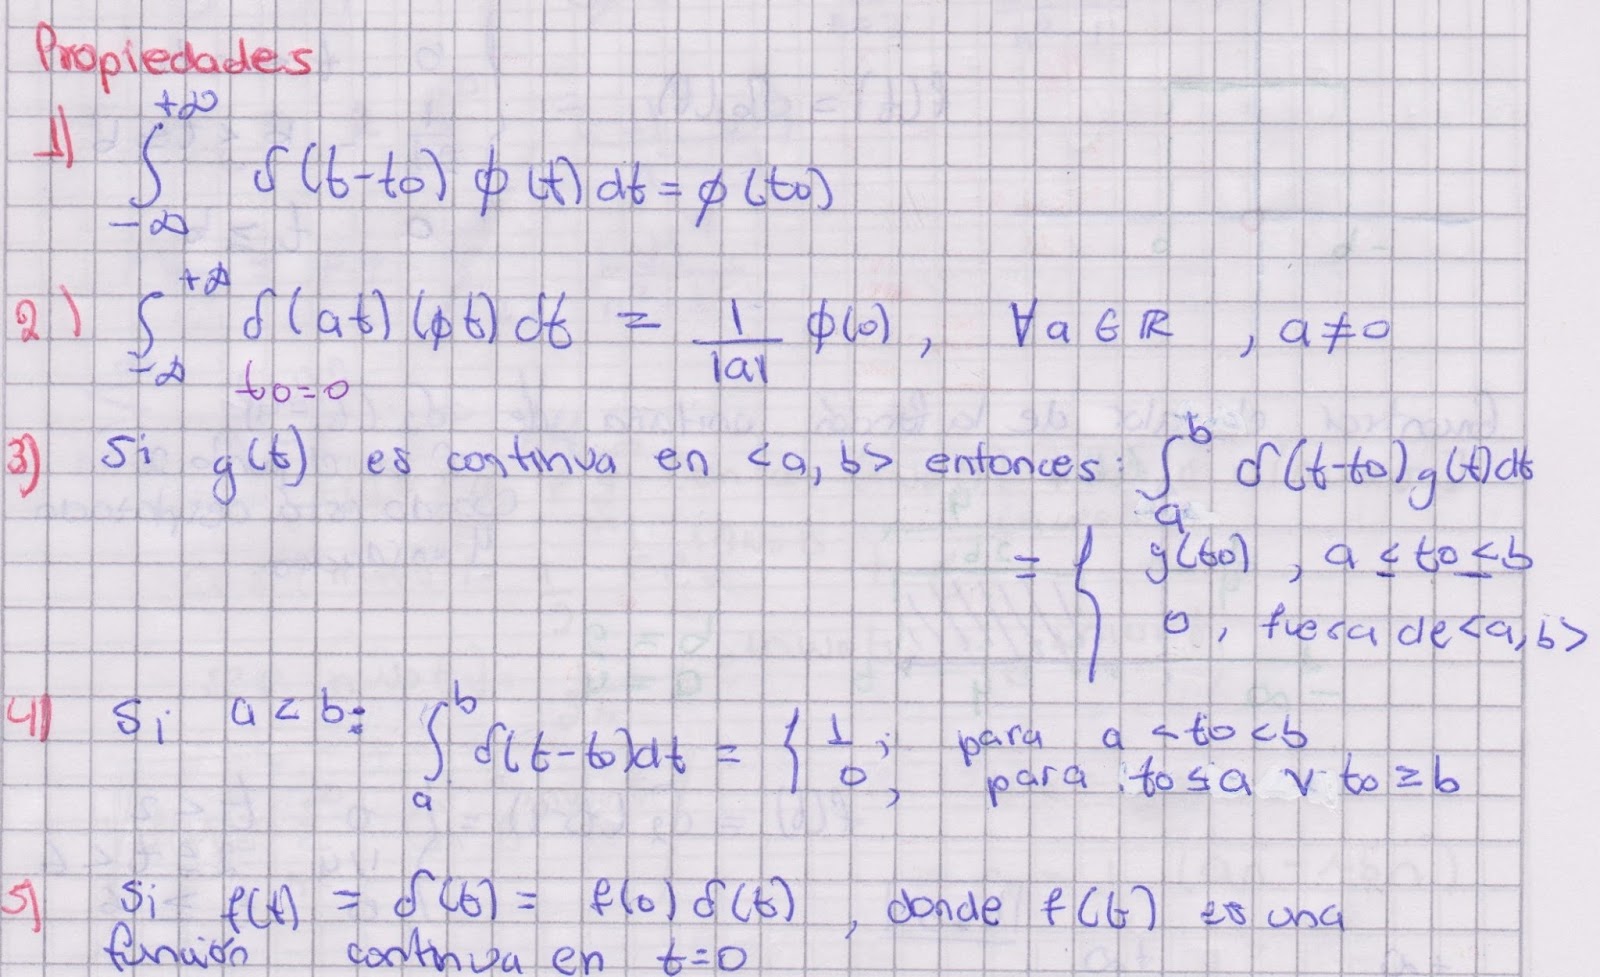 Propiedades
1) ∫_{-∞}^{+∞} δ(t-to) ϕ(t) dt = ϕ(to)
2) ∫_{-∞}^{+∞} δ(at) (ϕt) dt = 1/|a| ϕ(0), ∀a ∈ ℝ, a ≠ 0
to=0
3) Si g(t) es continua en <a, b> entonces: ∫_{a}^{b} δ(t-to)g(t)dt
= { g(to), a ≤ to ≤ b
0, fuera de <a, b>
4) Si a < b: ∫_{a}^{b} δ(t-to)dt = { 1; para a < to < b
0; para to ≤ a ∨ to ≥ b
5) Si f(t) = δ(t) = f(0) δ(t), donde f(t) es una
función continua en t=0